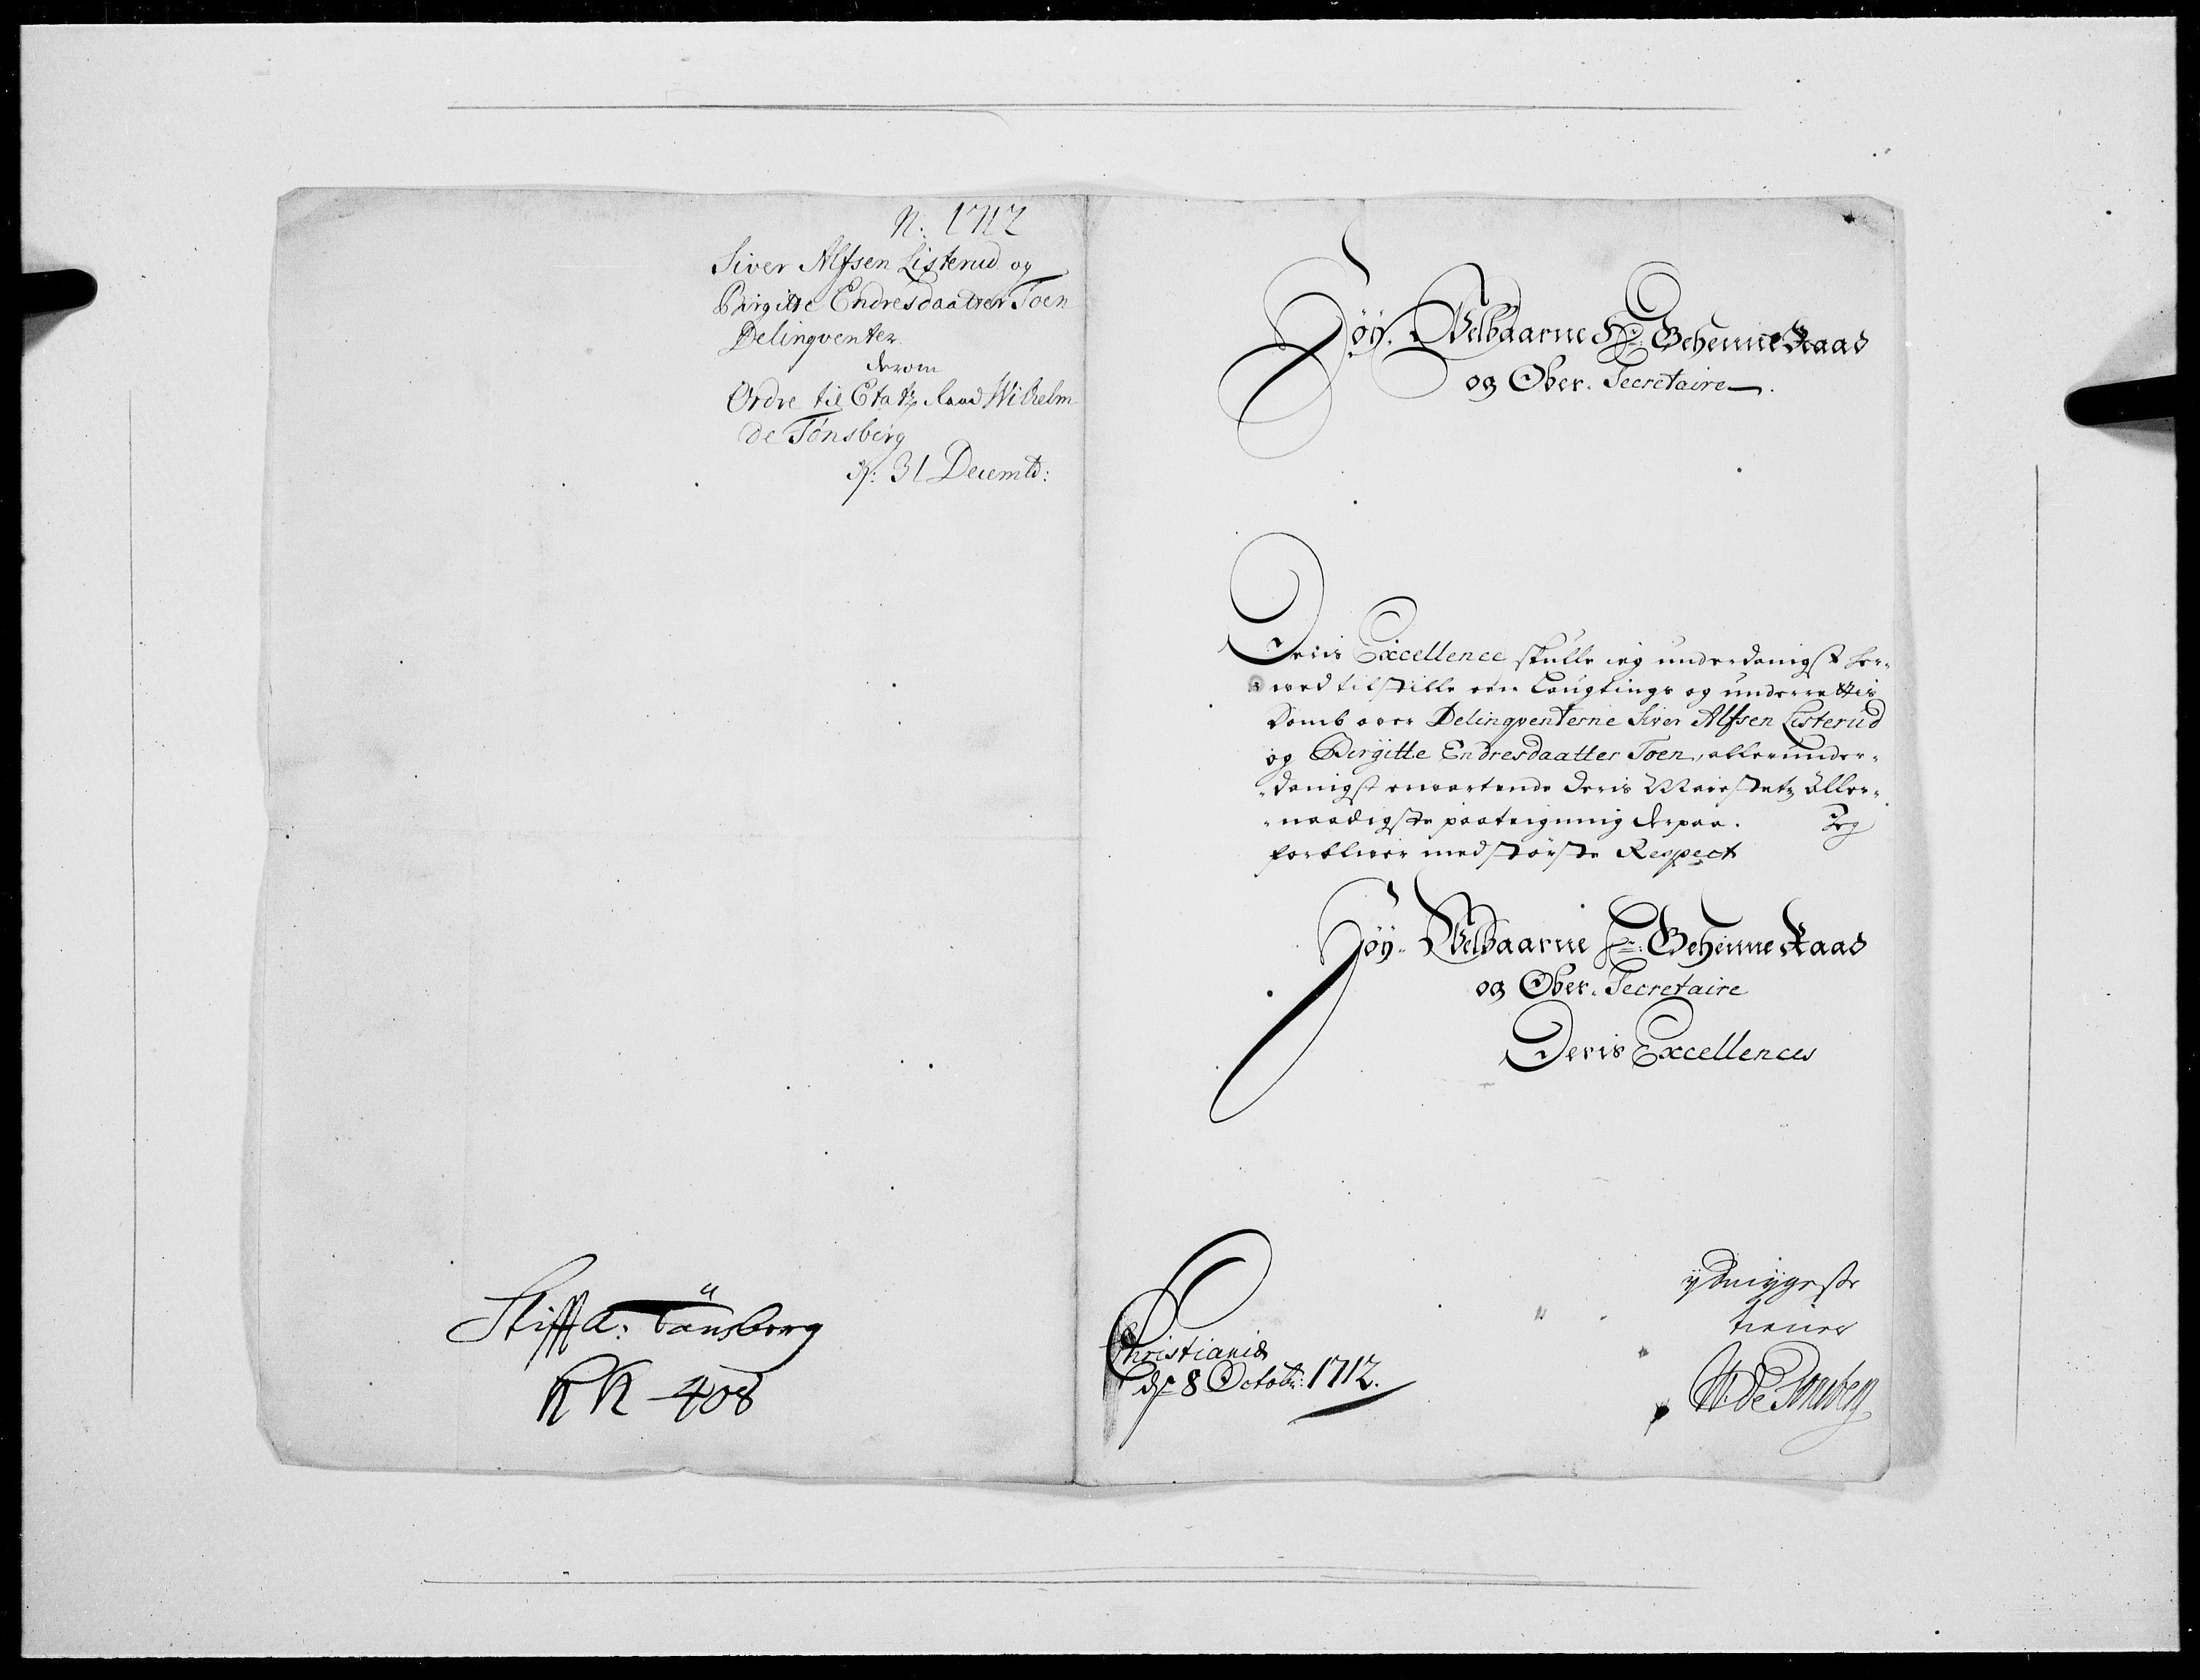 N. 1712
Siver Alfsen Listerud og
Birgitte Endresdaatter Toen
Delinqventer
derom
Ordre til Etatz Raad Wilhelm
de Tønsberg
d: 31 Decembr:
Stiffta: Tønsberg
N 408
Høy. Welbaarne Hr: Geheime Raad
og Ober. Secretaire
Deris Excellence skulle ieg underdanigst her-
wed tilstille een Laugtings og underrettis
Domb ower Delinqventerne Siver Alfsen Listerud
og Birgitte Endresdaatter Toen, allerunder-
-danigst erwartende Deris Mayestetz aller-
-naadigste paateigning derpaa. Jeg
forbliver med største Respect
Høy- Welbaarne Hr: Geheime Raad
og Ober. Secretaire
Deris Excellences
Christiania
d: 8 Octobr: 1712.
ydmygeste
tiener
W. de Tonsberg